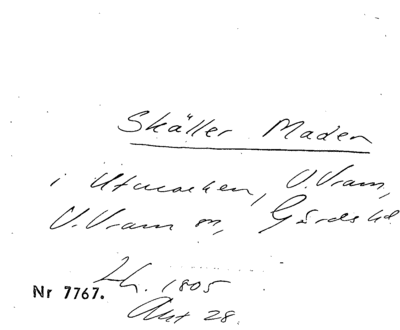 Skäller Maden
i Utmarken, V. Vram,
V. Vram sn, Gärds hd.
Lh. 1805
Nr 7767.
Akt 28.